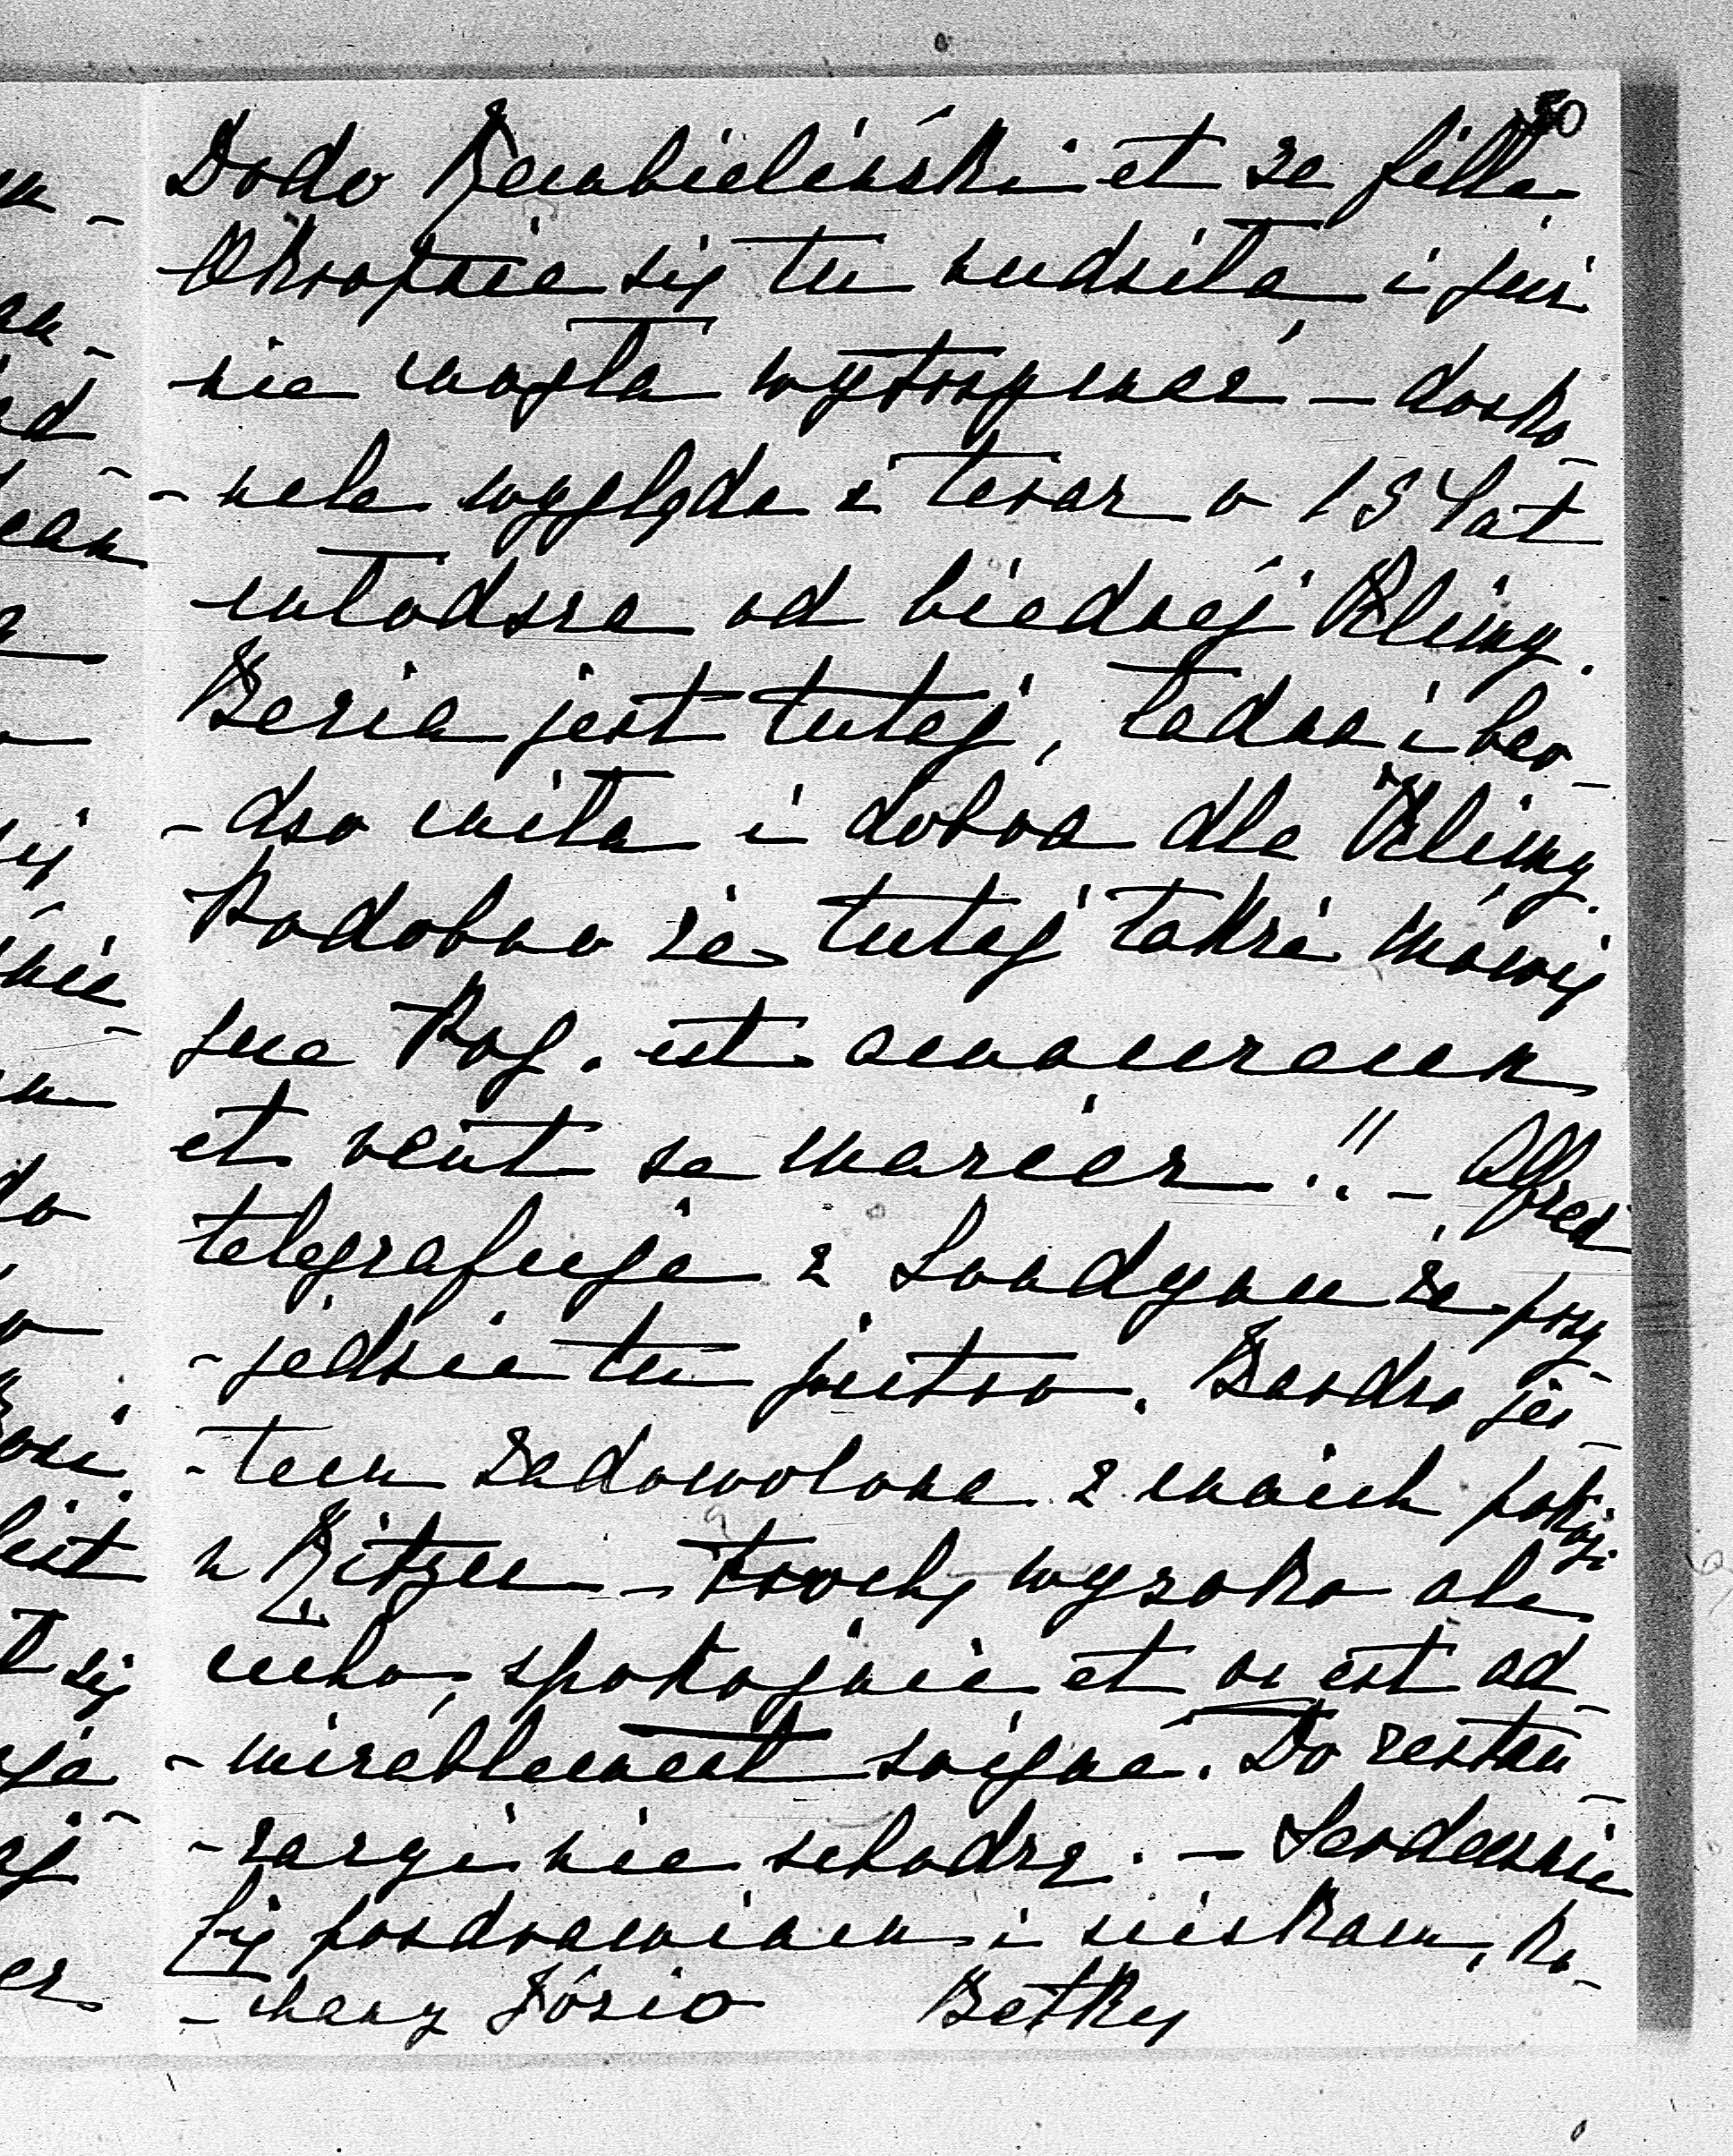 50
Dodo Rembieliński et sa fille.
Okropnie się tu nudziła, i już
nie mogła wytrzymać, – dosko
- nale wygląda i teraz o 15 lat
młodsza od biednej Klimy.
Bezia jest tutaj, ładna i bar-
- dzo miła i dobra dla Klimy.
Podobno że tutaj także mówią
que Rog. est amoureux
et veut se marier !! – Alfred
telegrafuje z Londynu że przy
- jedzie tu jutro. Bardzo jes-
- tem zadowolona z moich pokoi
u Ritza – trochę wysoko ale
cicho, spokojnie et on est ad-
- mirablement soigné. Do restau-
- racyi nie schodzę. – Serdecznie
Cię pozdrawiam i ściskam, ko-
- chany Józio Betka